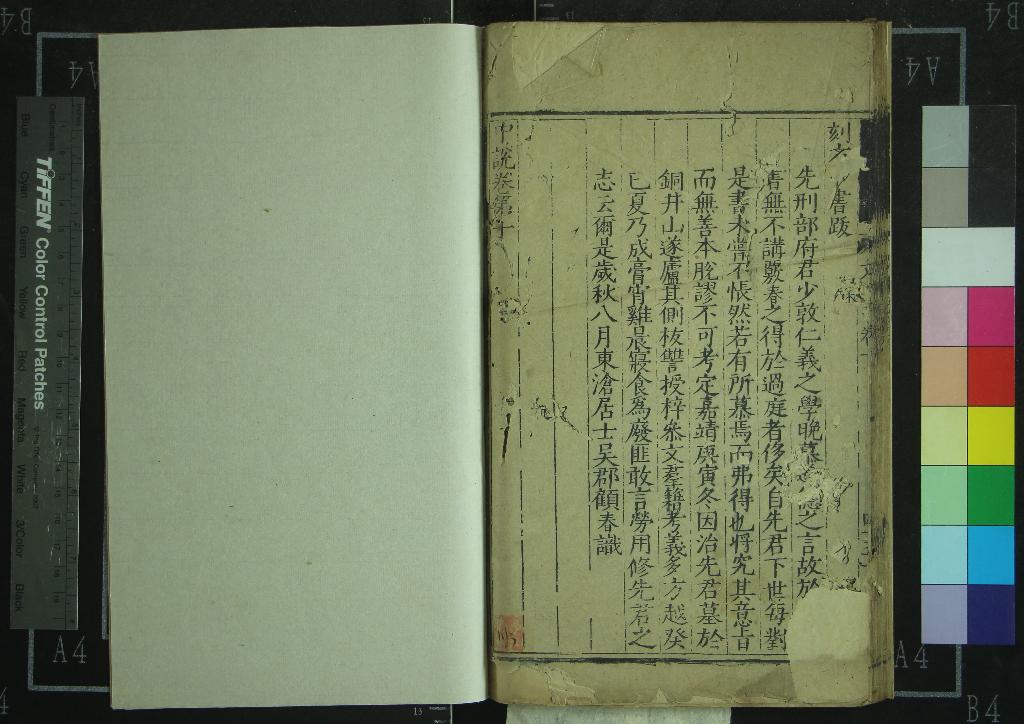 刻六子書跋
先刑部府君少敦仁義之學晚慕道德之言故於
書無不講嚴春之得於過庭者侈矣自先君下世每對
是書未嘗不悵然若有所慕焉而弗得也將究其意旨
而無善本脫謬不可考定嘉靖庚寅冬因治先君墓於
銅井山遂廬其側核讐授梓叅文羣籍考義多方越癸
巳夏乃成膏宵雞晨寢食為廢匪敢言勞用修先君之
志云爾是歲秋八月東滄居士吴郡顧春識
中說卷第十
TIFFEN Color Control Patches
Blue
Cyan
Green
Yellow
Red
Magenta
White
3/Color
Black
A4
A4
A4
A4
B4
B4
B4
13